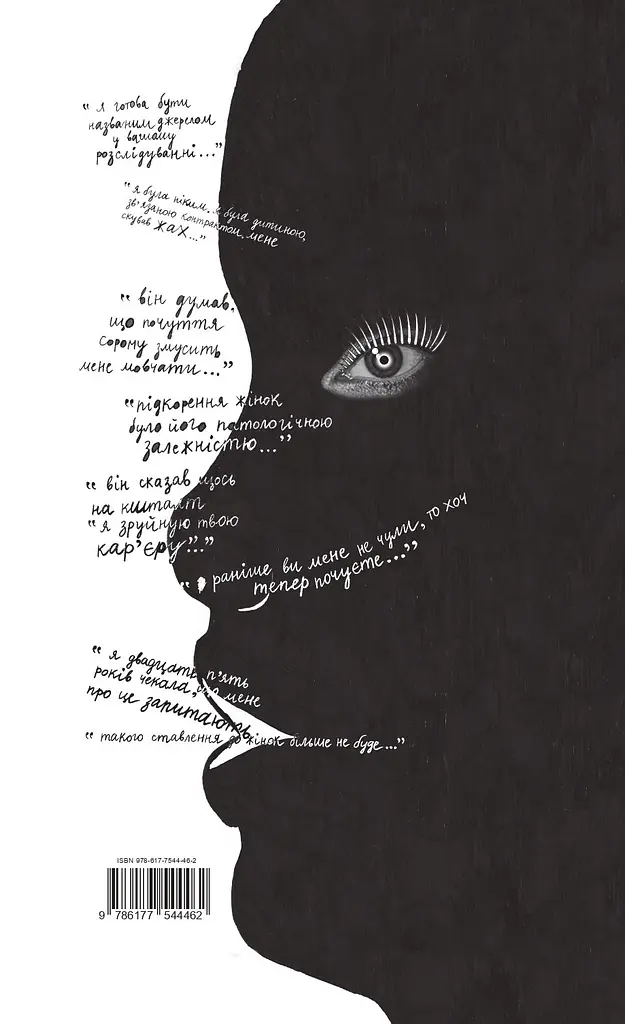 “я готова бути
названим джерелом
у вашому
розслідуванні...”
“я була ніким. я була дитиною,
зв'язаною контрактом. мене
скував жах...”
“він думав,
що почуття
сорому змусить
мене мовчати...”
“підкорення жінок
було його патологічною
залежністю...”
“він сказав щось
на кшталт
“я зруйную твою
кар'єру”...”
“раніше ви мене не чули, то хоч
тепер почуєте...”
“я двадцять п'ять
років чекала, що мене
про це запитають”
“такого ставлення до жінок більше не буде...”
ISBN 978-617-7544-46-2
9 786177 544462